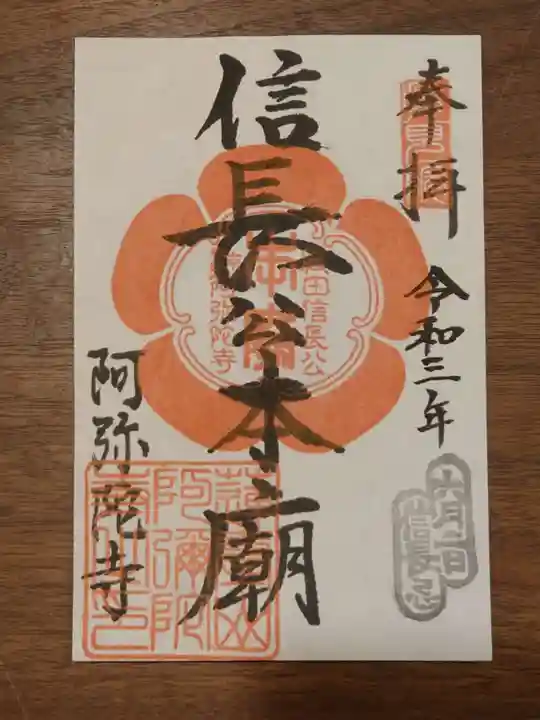 奉拝
令和三年
六月二日
信長忌
信長公本廟
織田信長公
本廟
阿弥陀寺
阿弥陀寺